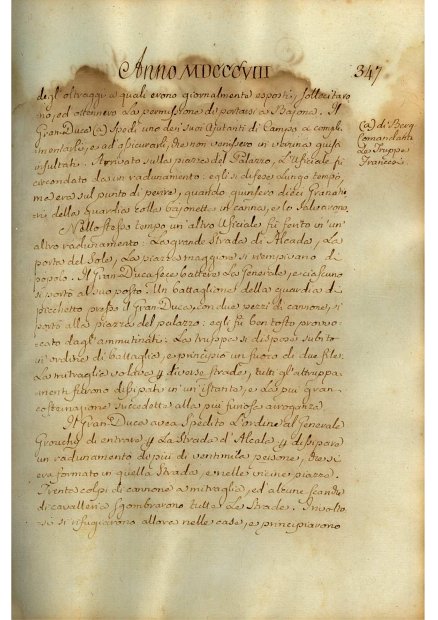 Anno MDCCCVIII 347
degl'oltraggi a quali erono giornalmente esposti, sollecitaro
no, ed ottennero la permissione di portarsi a Bajona. Il
Gran-Duca (a) spedì uno dei suoi Ajutanti di Campo a compli
mentarli, e ad assicurarli, che non venissero in veruna guisa
insultati. Arrivato sulla piazza del Palazzo, L'Ufiziale fu
circondato da un radunamento: egli si difese lungo tempo,
ma era sul punto di perire, quando giunsero dieci Granatie
rii della Guardia colla bajonetta in canna, e lo salvarono.
Nello stesso tempo un altro Ufiziale fù ferito in un'
altro radunamento: La grande Strada di Alcala, La
porta del Sole, La piazza maggiore si riempivano di
popolo. Il Gran Duca fece battere La Generale, e ciascuno
si portò al suo posto. Un battaglione della guardia di
picchetto presso il Gran Duca, con due pezzi di cannone, si
portò alla piazza del palazzo: egli fù ben tosto provo-
cato dagl'ammutinati. La truppa si dispose subito
in ordine di battaglia, e principiò un fuoco di due file.
La mitraglia voltiva diverse strade, tutti gl'attruppa
menti furono dissipati in un'istante, e la più gran
costernazione succedette alla più furiosa arroganza.
Il Gran Duca avea spedito L'ordine al Generale
Grouchy di entrare La Strada d'Alcala dissipare
un radunamento di più di ventimila persone, che si
era formato in quella Strada, e nelle vicine piazze.
Trenta colpi di cannone a mitraglia, ed alcune
di cavalleria sgombrarono tutte Le Strade. Rivolto
si rifugiarono allora nelle case, e principiarono
(a) di Berg
Comandante
Le Truppe
Francesi